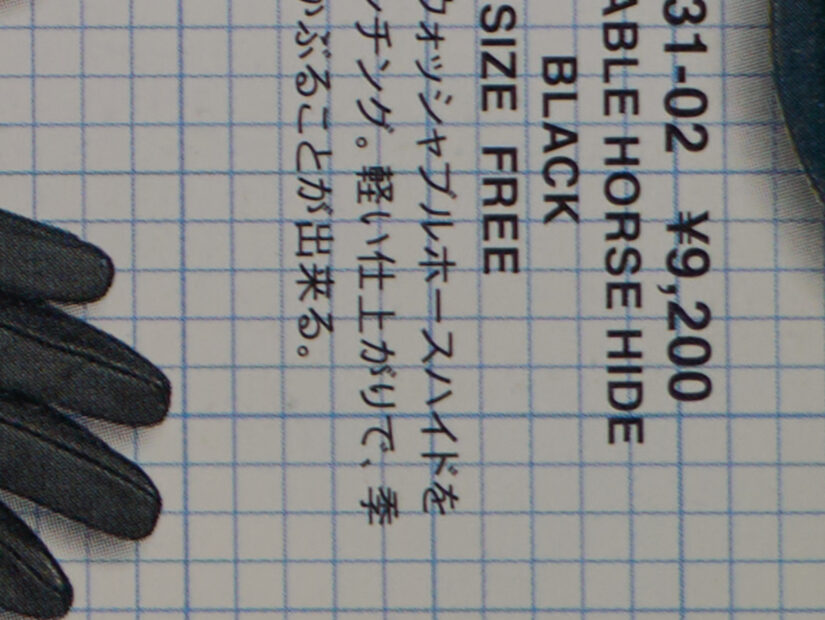 31-02 ¥9,200
ABLE HORSE HIDE
BLACK
SIZE FREE
ウォッシャブルホースハイドを
ッチング。軽い仕上がりで、季
かぶることが出来る。